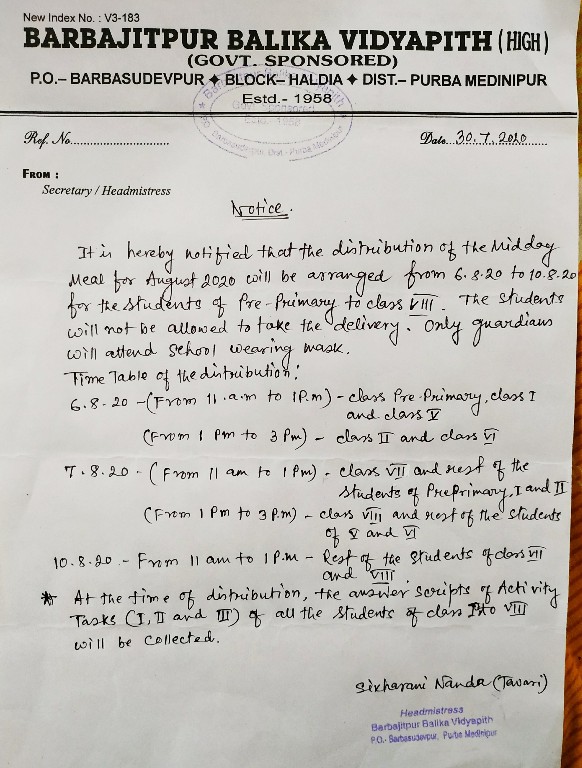 New Index No. : V3-183
BARBAJITPUR BALIKA VIDYAPITH (HIGH)
(GOVT. SPONSORED)
P.O.– BARBASUDEVPUR ✦ BLOCK– HALDIA ✦ DIST.– PURBA MEDINIPUR
Estd.- 1958
Ref. No............................... Date...30.7.2020........
FROM :
Secretary / Headmistress
Notice.
It is hereby notified that the distribution of the Midday
Meal for August 2020 will be arranged from 6.8.20 to 10.8.20
for the students of Pre-Primary to class VIII. The students
will not be allowed to take the delivery. Only guardians
will attend school wearing mask.
Time Table of the distribution:
6.8.20 –(From 11.a.m to 1P.m) – class Pre-Primary, class I
and class V
(From 1 Pm to 3 Pm) – class II and class VI
7.8.20 – (From 11 am to 1Pm) – class VII and rest of the
students of Preprimary, I and II
(From 1 Pm to 3 P.m) – class VIII and rest of the students
of V and VI
10.8.20 – From 11 am to 1 P.m – Rest of the students of class VII
and VIII.
* At the time of distribution, the answer scripts of Activity
Tasks (I, II and III) of all the students of class I to VIII
will be collected.
Nanda (Tawari)
Headmistress
Barbajitpur Balika Vidyapith
P.O.- Barbasudevpur, Purba Medinipur